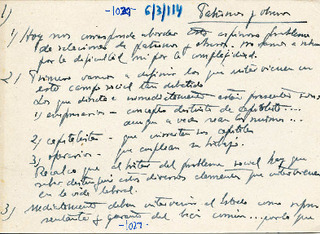 1)
-1027-
6/3/114
Patronos y obreros
1) Hoy nos corresponde abordar este espinoso problema
de relaciones de patronos y obreros. no vamos a
por la dificultad ni por la complejidad.
2) Primero vamos a definir los que intervienen en
este campo social tan debatido
Los que directa o inmediatamente están presentes son:
1) empresarios - concepto distinto de capitalista...
aunque a veces sean los mismos...
2) capitalistas - que invierten sus capitales
3) operarios - que emplean su trabajo.
Recalco que al tratar del problema social hay que
saber distinguir estos diversos elementos que intervienen
en la vida laboral.
3) mediatamente deben intervenir el Estado como
sentante y garante del bien común... por lo que
-1027-